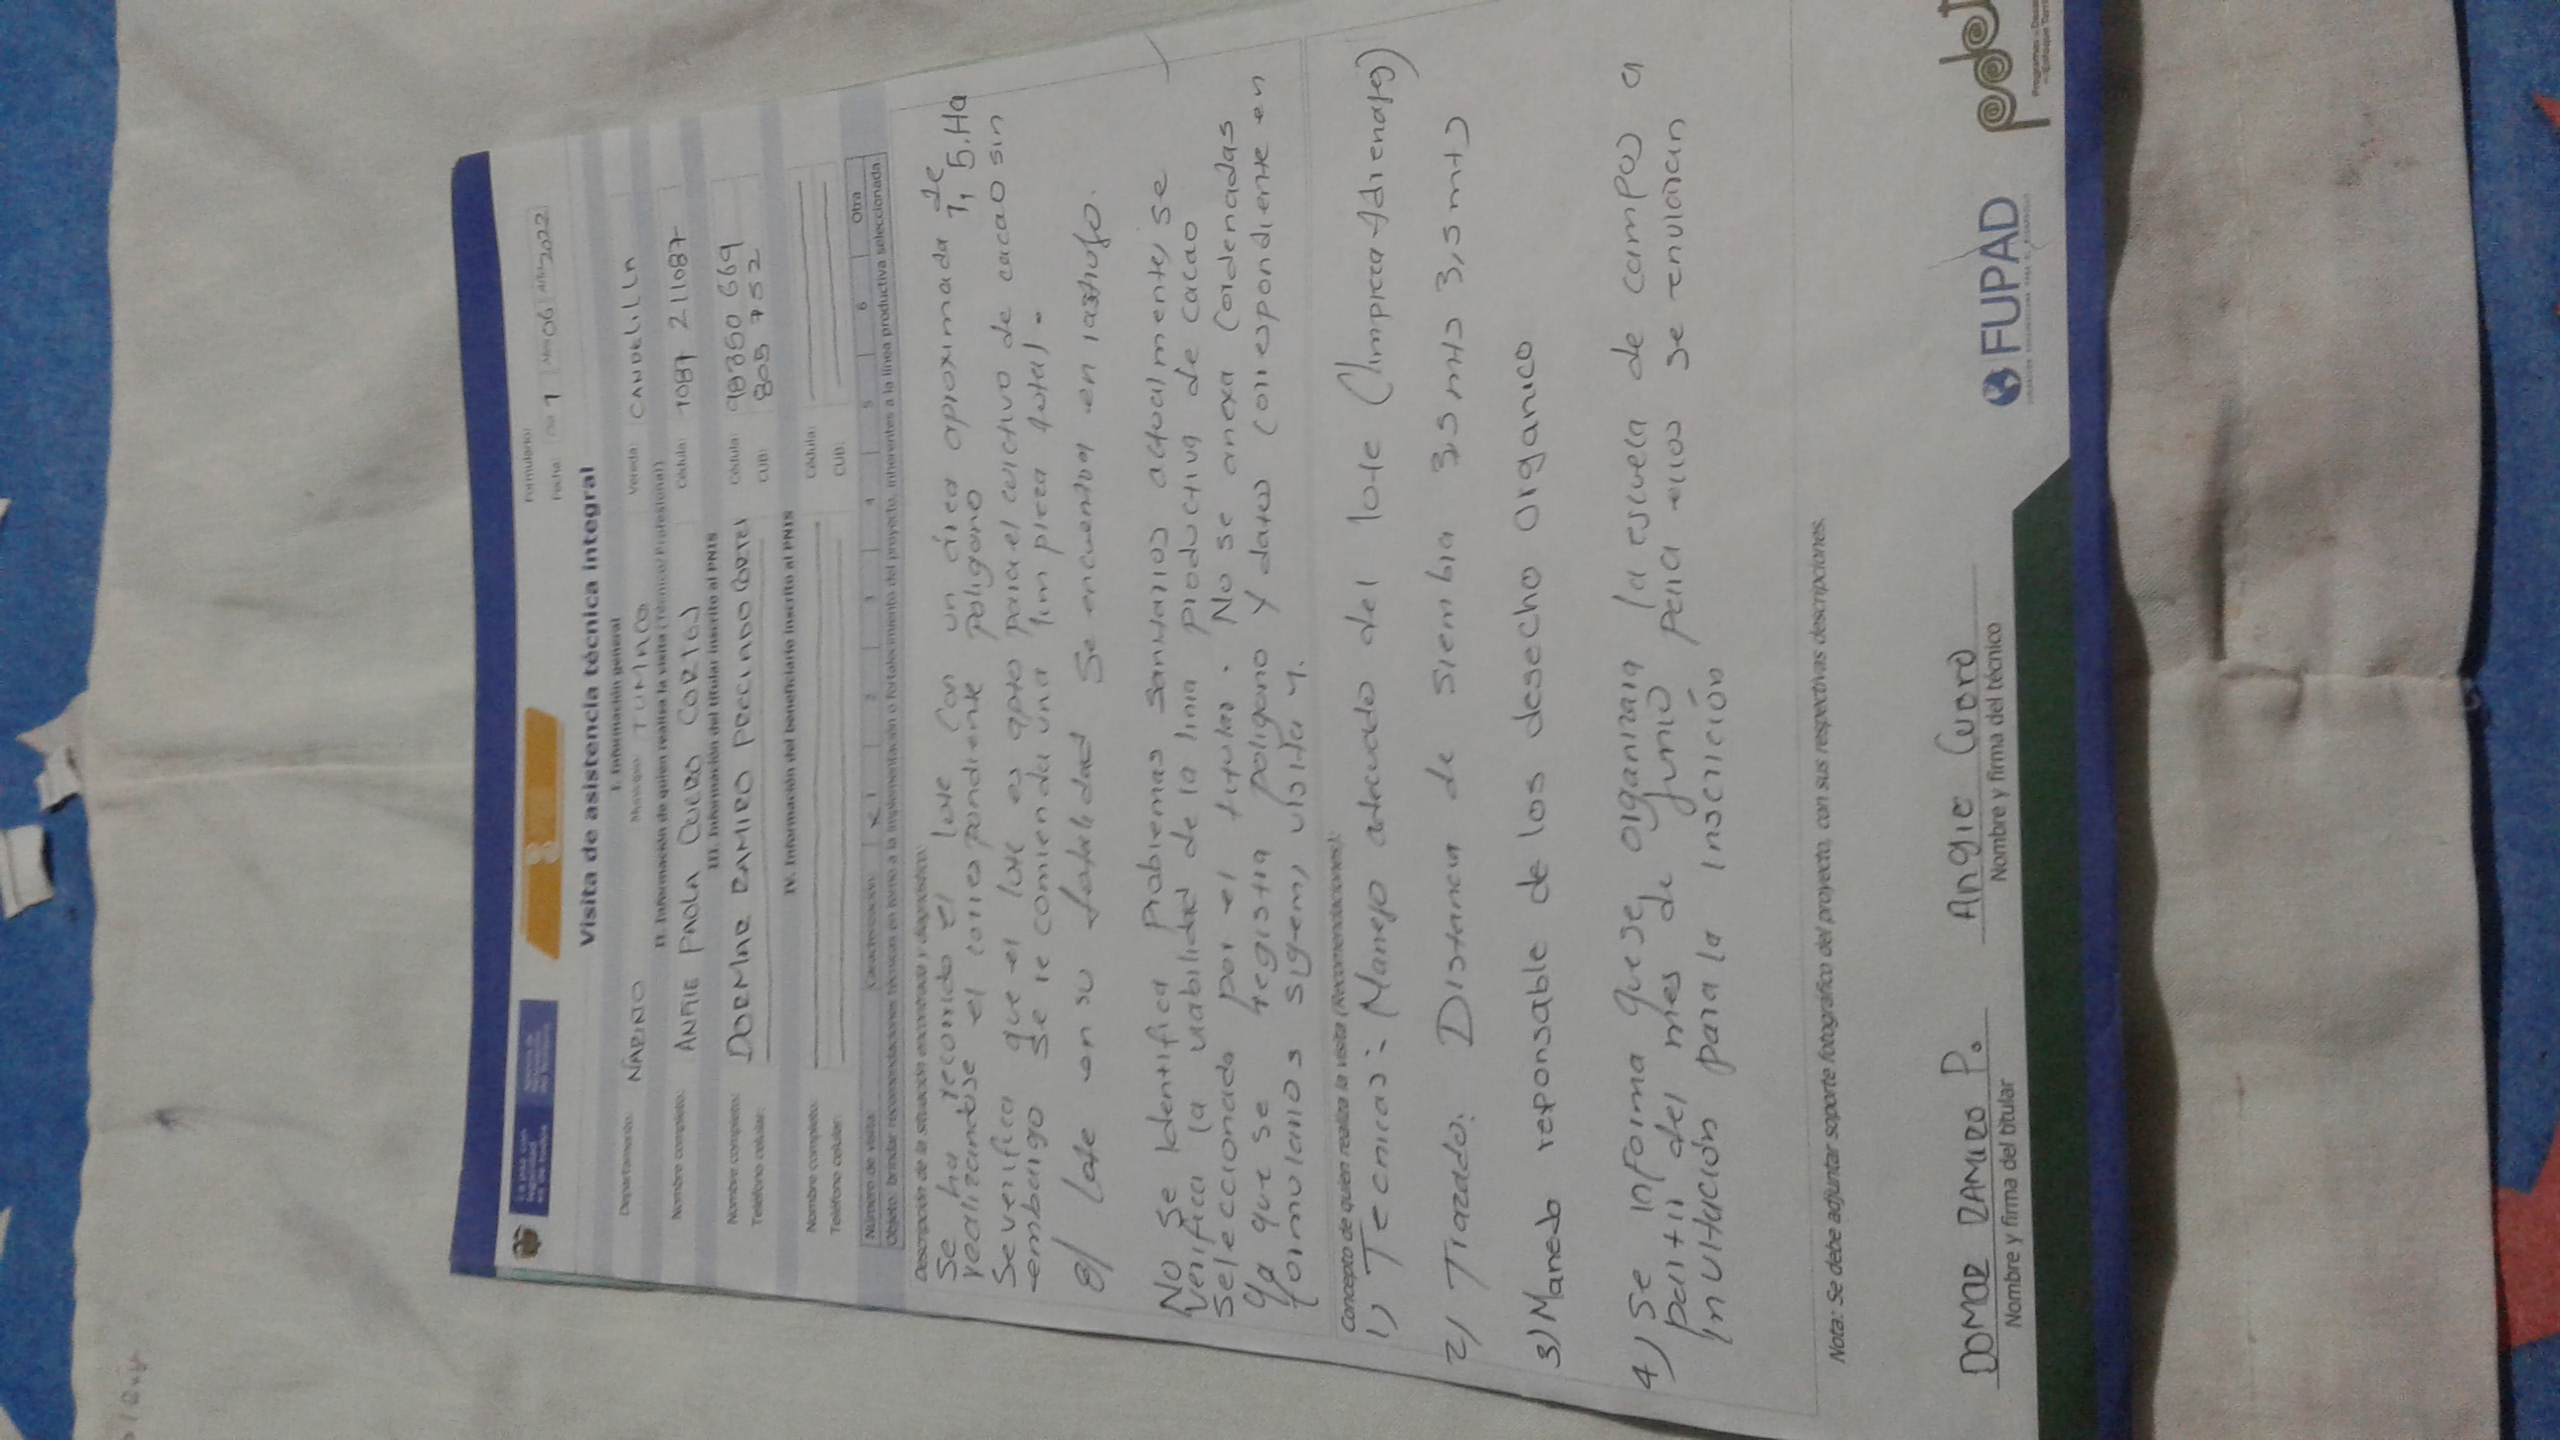 Formulario:
Fecha: Día 1 Mes 06 Año 2022
Visita de asistencia técnica integral
I. Información general
Departamento: NARINO Municipio TUMACO Vereda: CANDELILLA
II. Información de quien realiza la visita (Técnico/Profesional)
Nombre completo: ANGIE PAOLA CUERO CORTES Cédula: 1087 211087
III. Información del titular inscrito al PNIS
Nombre completo: DORMAR RAMIRO PRECIADO CORTES Cédula: 98350 669
Teléfono celular: CUB: 805 752
IV. Información del beneficiario inscrito al PNIS
Nombre completo: Cédula:
Teléfono celular: CUB:
Número de visita: Caracterización X 1 2 3 4 5 6 Otra
Objeto: brindar recomendaciones técnicas en torno a la implementación o fortalecimiento del proyecto, inherentes a la línea productiva seleccionada.
Descripción de la situación encontrada y diagnóstico:
Se ha recorrido el lote con un área aproximada de 1,5.Ha
realizandose el correspondiente poligono
Se verifica que el lote es apto para el cultivo de cacao sin
embargo se recomienda una limpieza total.
El lote en su totalidad se encuentra en rastrojo.
No se identifica problemas sanitarios actualmente, se
verifica la viabilidad de la linia productiva de cacao
seleccionada por el titular. No se anexa Cordenadas
ya que se registra poligono y datos correspondiente en
formularios sygem, visita 4.
Concepto de quien realiza la visita (Recomendaciones):
1) Tecnicas: Manejo adecuado del lote (limpieza + drenajes)
2) Trazado: Distancia de siembra 3,5 mts 3,5 mts
3) Manedo reponsable de los desecho organico
4) Se informa que se organizara la escuela de campos a
partir del mes de junio para ellos se enviaran
invitación para la inscrición
Nota: Se debe adjuntar soporte fotográfico del proyecto, con sus respectivas descripciones.
DOMAR RAMIRO P. Angie Cuero
Nombre y firma del titular Nombre y firma del técnico
FUPAD
pdet